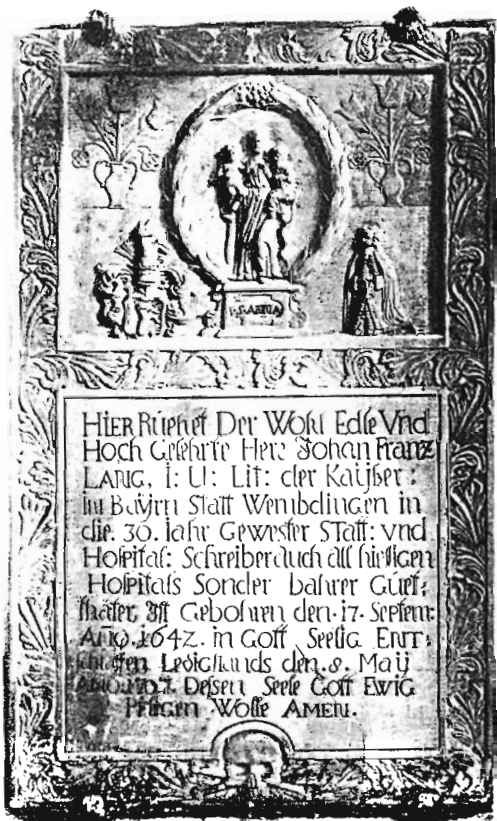 S. ANNA
HIER Ruehet Der Wohl Edle Vnd
Hoch Gelehrte Herr Johan Franz
LANG, I: U: Lit: der Kaÿßer:
in Baÿrn Statt Wembdingen in
die. 30. Iahr Gewester STatt: vnd
Hoſpital: Schreiber auch all hiesigen
Hoſpitals Sonder bahrer Guet:
thäter, Iſt Gebohren den. 17. Septem:
Año. 1642. in Gott Seelig Ent:
schlaffen Ledigstands den. 8. Maÿ
Año. 1707. Deſsen Seele Gott Ewig
Pflegen Wolle AMEN.